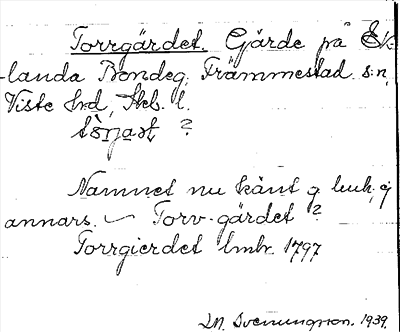 Torrgärdet. Gärde på Ek-
landa Bondeg. Främmestad s:n,
Viste hrd, Skb. l.
Namnet nu känt g. luch, ej
annars. Torv-gärdet ?
Torrgierdet lmhr. 1797
S.M. Svenungson. 1939.